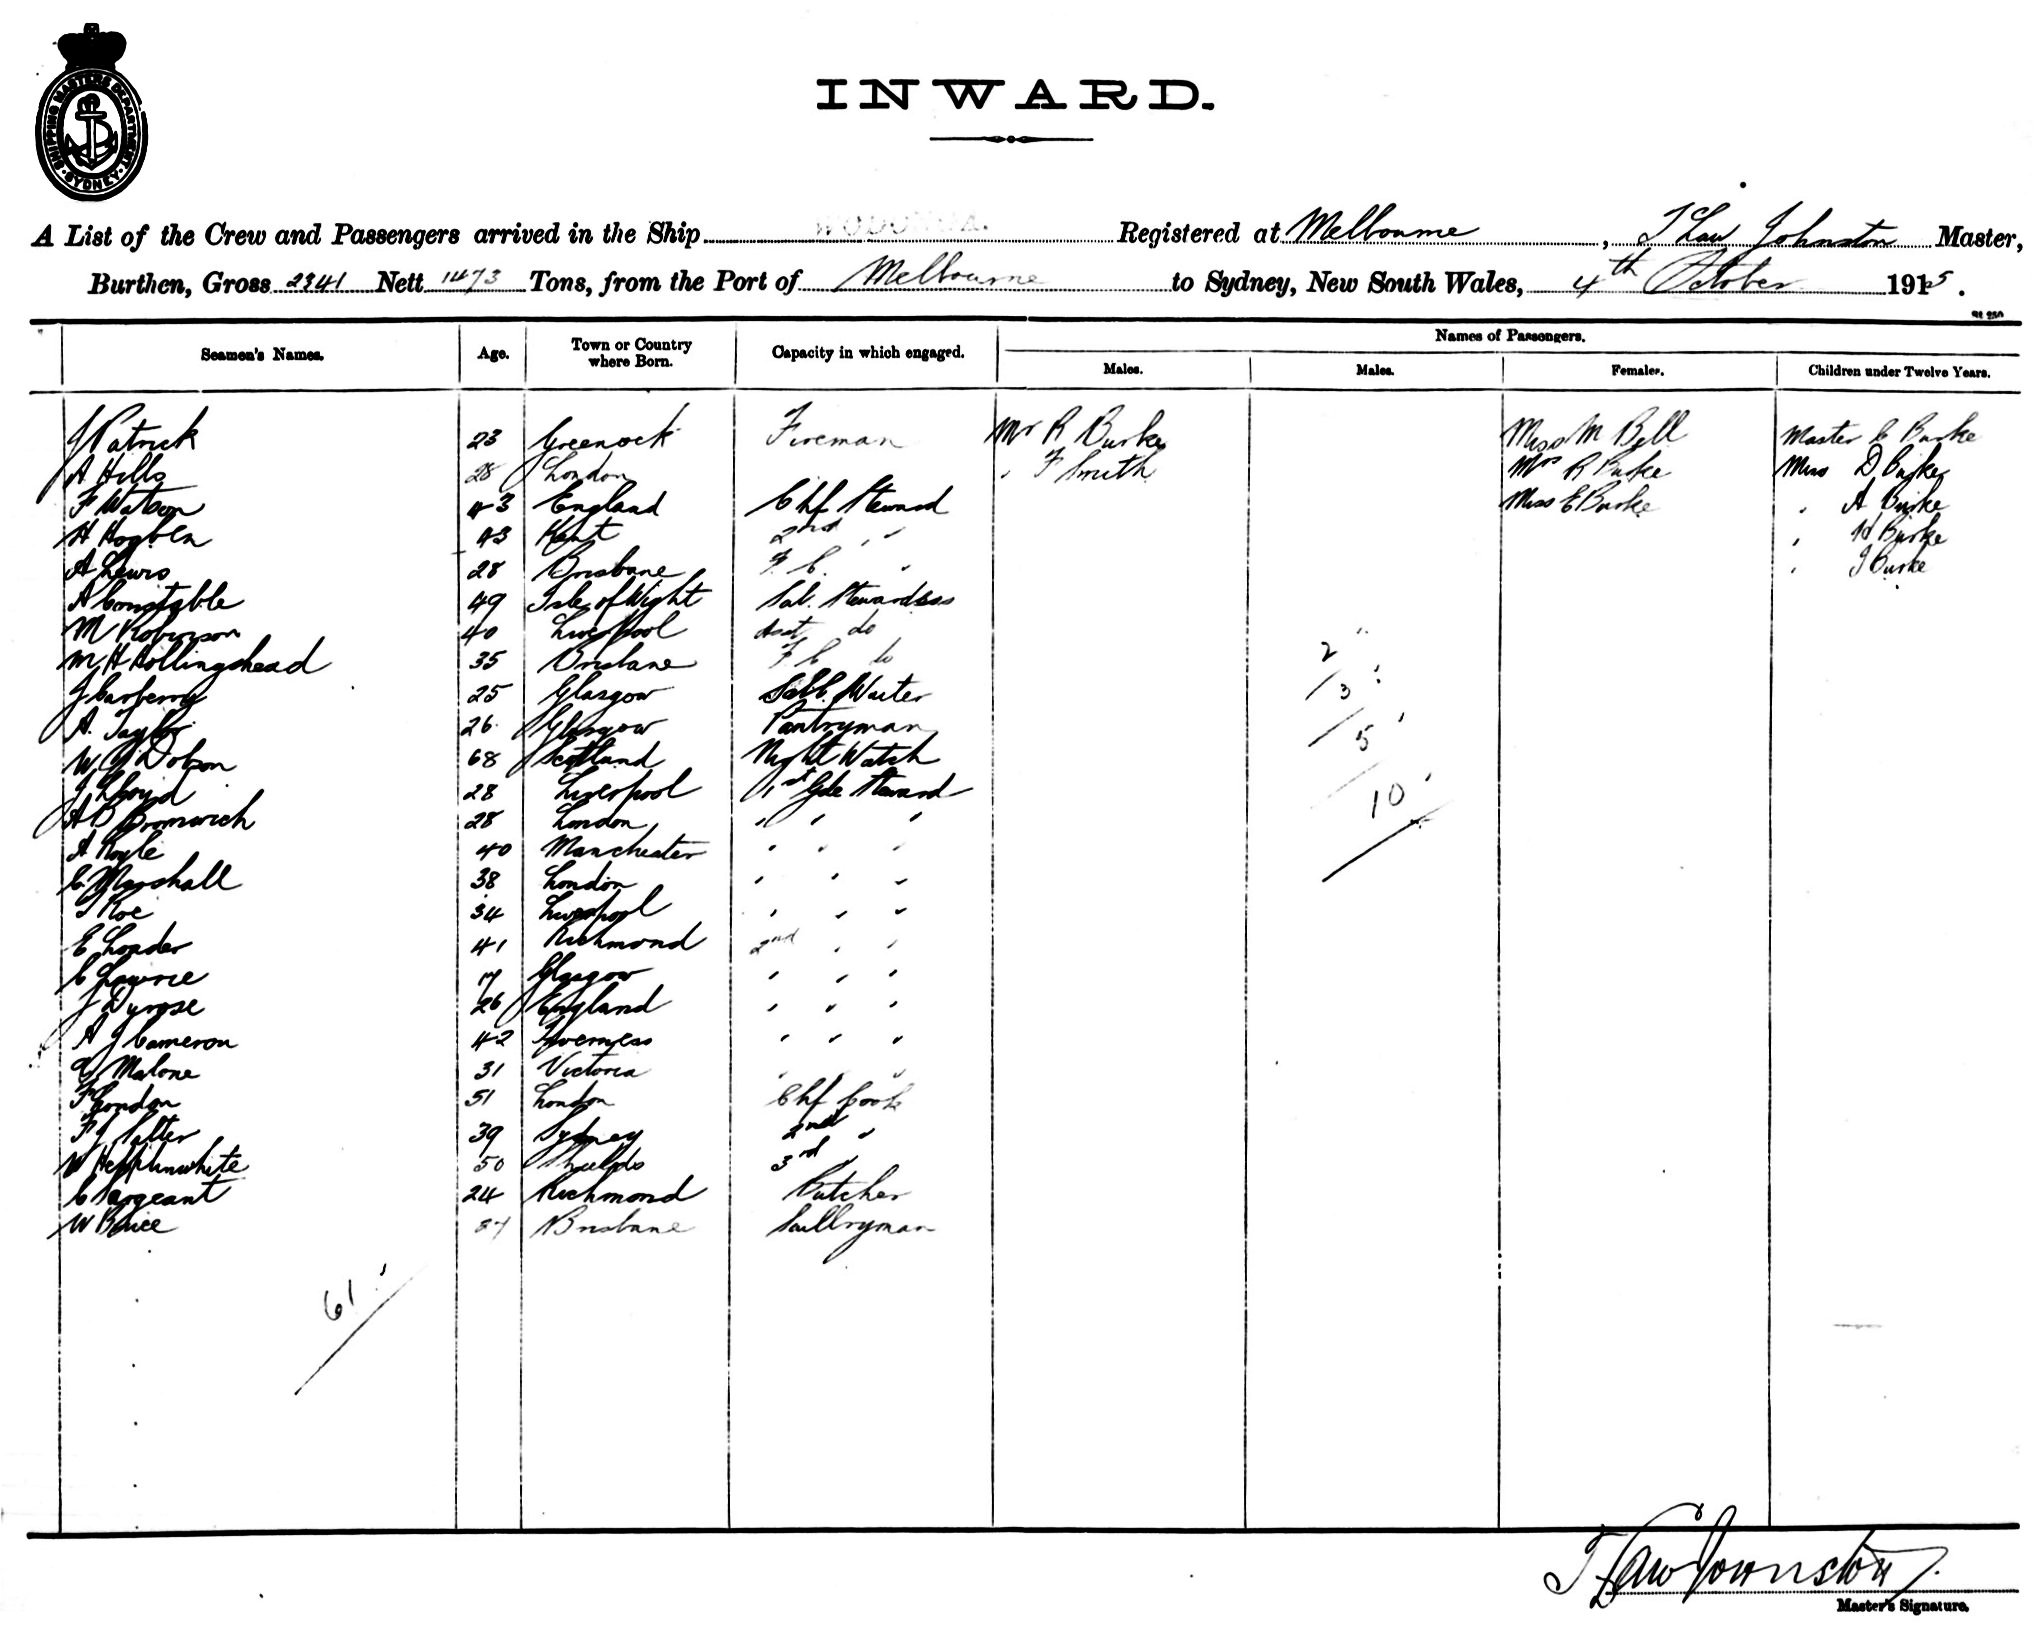 SHIPPING MASTERS DEPARTMENT
SYDNEY
INWARD.
A List of the Crew and Passengers arrived in the Ship WODONGA. Registered at Melbourne, T Law Johnston Master,
Burthen, Gross 2341 Nett 1473 Tons, from the Port of Melbourne to Sydney, New South Wales, 4th October 1915.
Names of Passengers.
Seamen's Names. Age. Town or Country where Born. Capacity in which engaged. Males. Males. Females. Children under Twelve Years.
J Patrick 23 Greenock Fireman Mr R Burke Miss M Bell Master C Burke
A Hills 28 London " F Smith Mrs R Burke Miss D Burke
F Watson 43 England Chf Steward Miss E Burke " A Burke
H Hogben 43 Kent 2nd " " " H Burke
A Lewis 28 Brisbane F. C. " " J Burke
A Constable 49 Isle of Wight Sal. Stewardess
M Robinson 40 Liverpool Asst do
M H Hollingshead 35 Brisbane F C do 2
J Carberry 25 Glasgow Waiter 3
A. Taylor 26 Glasgow Pantryman 5
W Dobson 68 Scotland Night Watch
J Lloyd 28 Liverpool 1st Gde Steward 10
A B Bromwich 28 London " " "
A Royle 40 Manchester " " "
C. Marshall 38 London " " "
T Roe 34 Liverpool " " "
E Loader 41 Richmond 2nd " "
C Lawrie 17 Glasgow " " "
J Dyrose 26 England " " "
A J Cameron 42 Inverness " " "
Malone 31 Victoria " " "
F London 51 London Chf Cook
F J Salter 39 Sydney 2nd "
W Hepplinwhite 50 Shields 3rd "
C Sargeant 24 Richmond Butcher
W Bruce Brisbane Scullryman
61
T Law Johnston
Master's Signature.